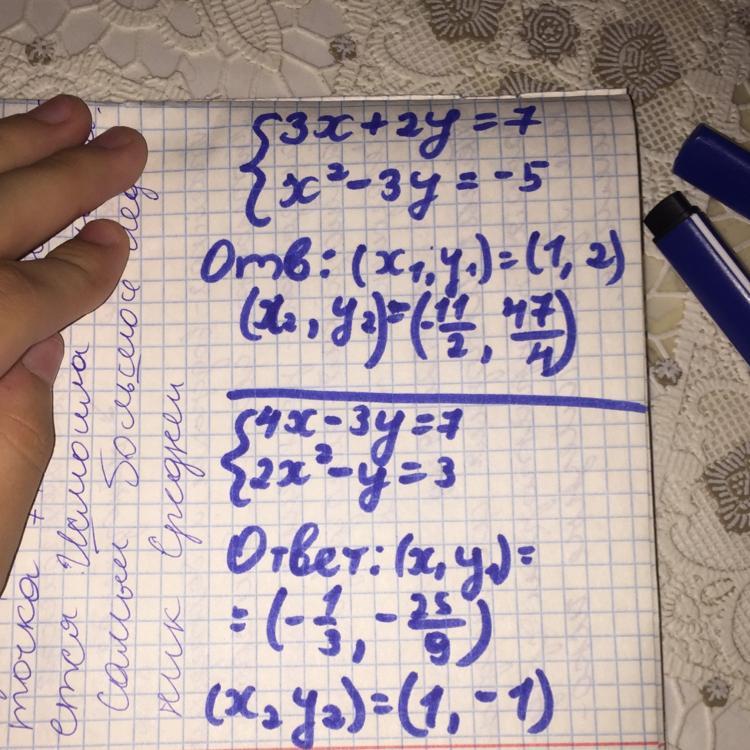 {3x+2y=7
x²-3y=-5
Отв: (x₁,y₁)=(1,2)
(x₂,y₂)=(-11/2, 47/4)
{4x-3y=7
2x²-y=3
Ответ: (x,y₁)=
=(-1/3, -25/9)
(x₂y₂)=(1,-1)
точка
ется
самый большое
ник средней